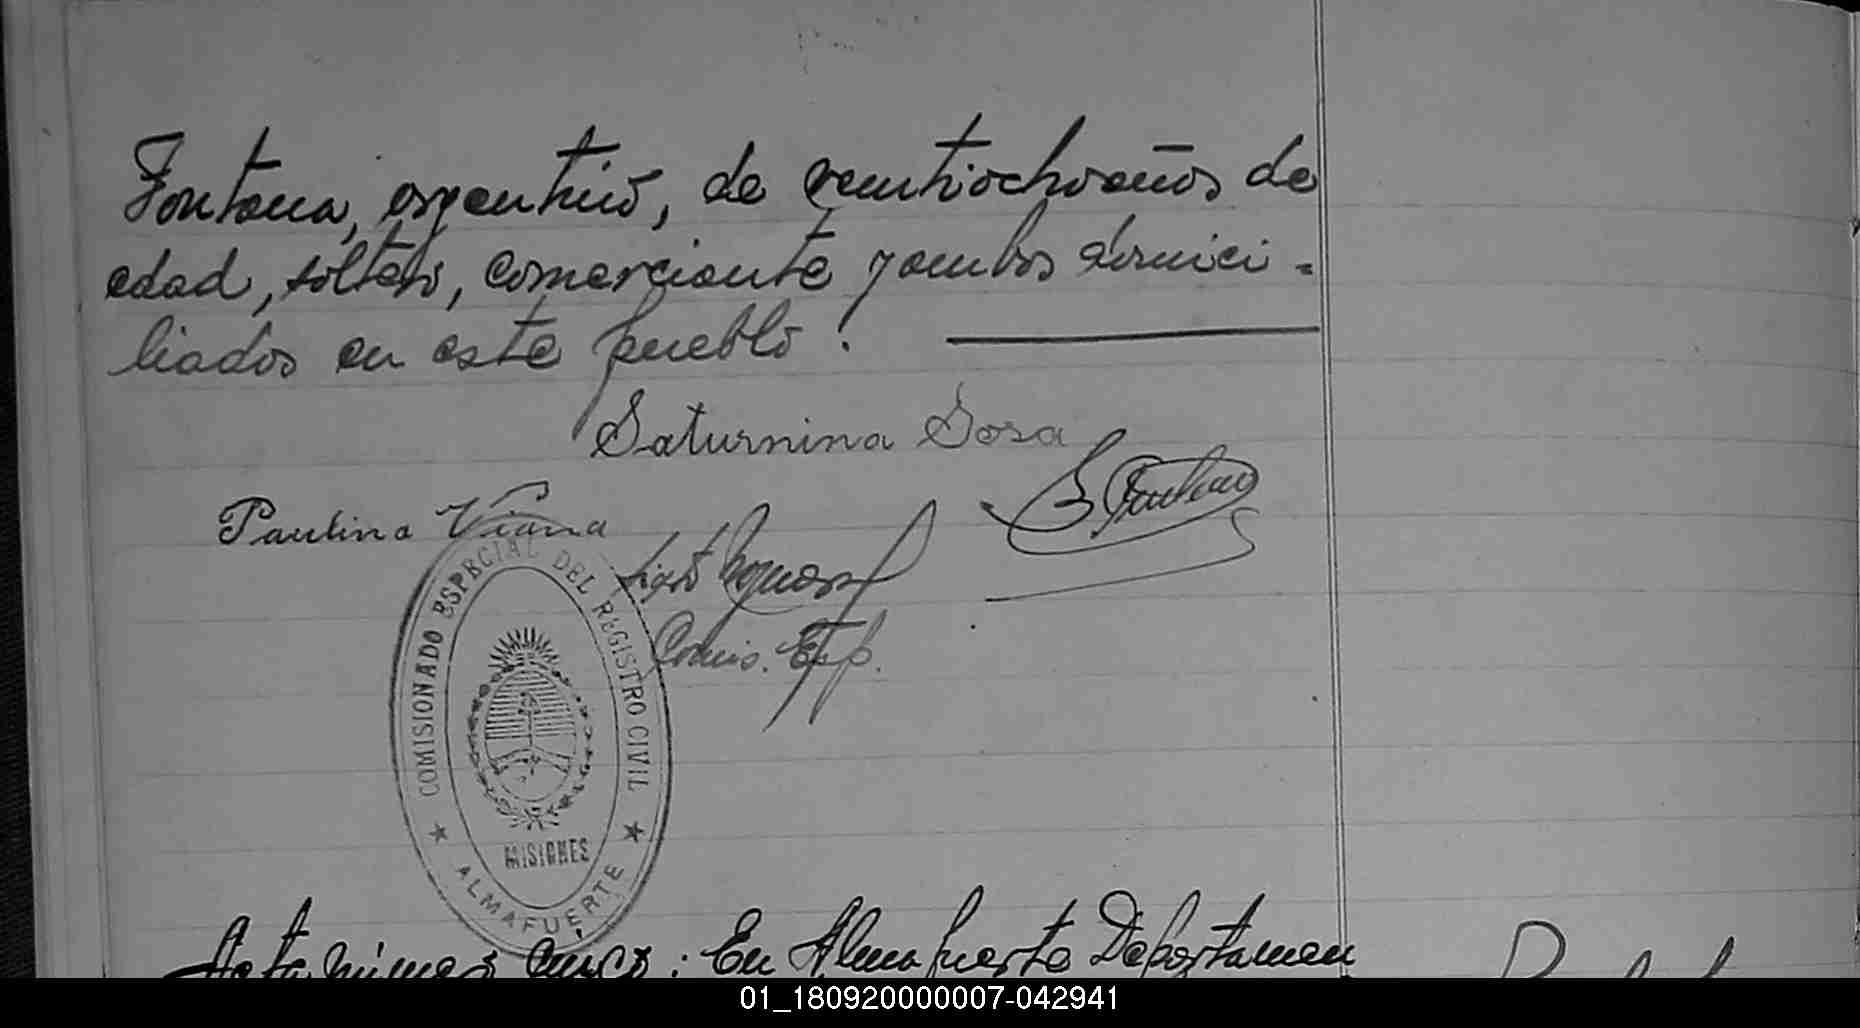 Fontana, argentino, de veintiochoaños de
edad, soltero, comerciante y ambos domici-
liados en este pueblo.
Saturnina Sosa
Paulina Viana
Comis. Esp.
COMISIONADO ESPECIAL DEL REGISTRO CIVIL
MISIONES
ALMAFUERTE
Acta número cinco: En Almafuerte Departamen
01_180920000007-042941